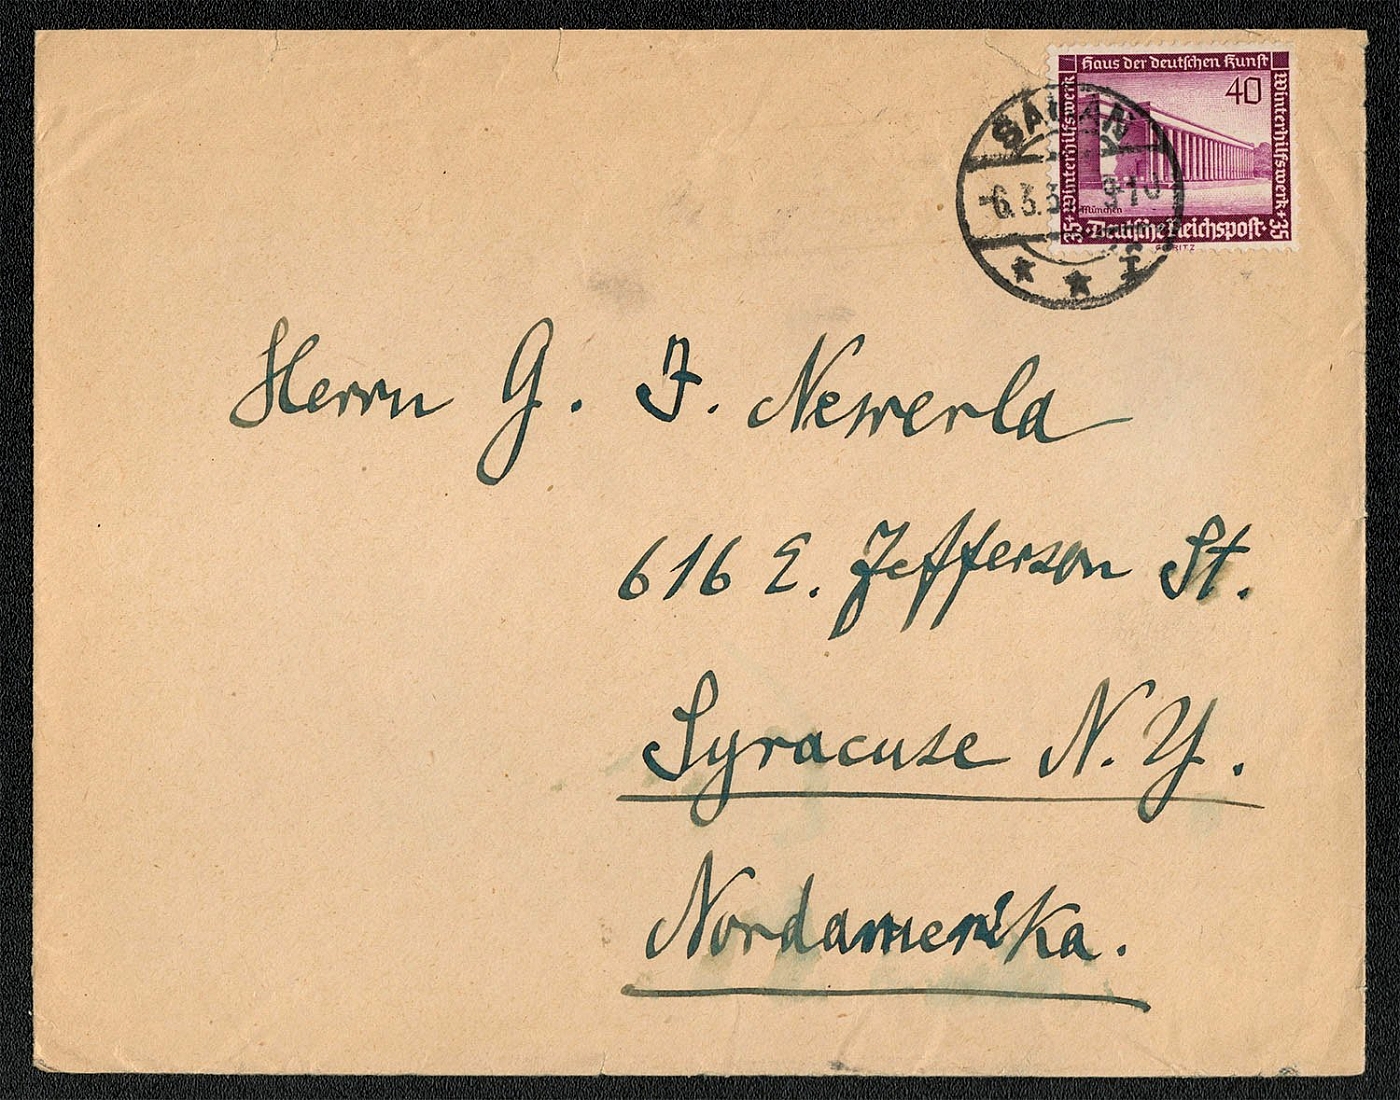 Haus der deutschen Kunst
40
+Winterhilfswerk
Winterhilfswerk+
München
35 · Deutsche Reichspost · 35
SAGAN
-6.3.3 9-10
Herrn G. J. Newerla
616 E. Jefferson St.
Syracuse N. Y.
Nordamerika.